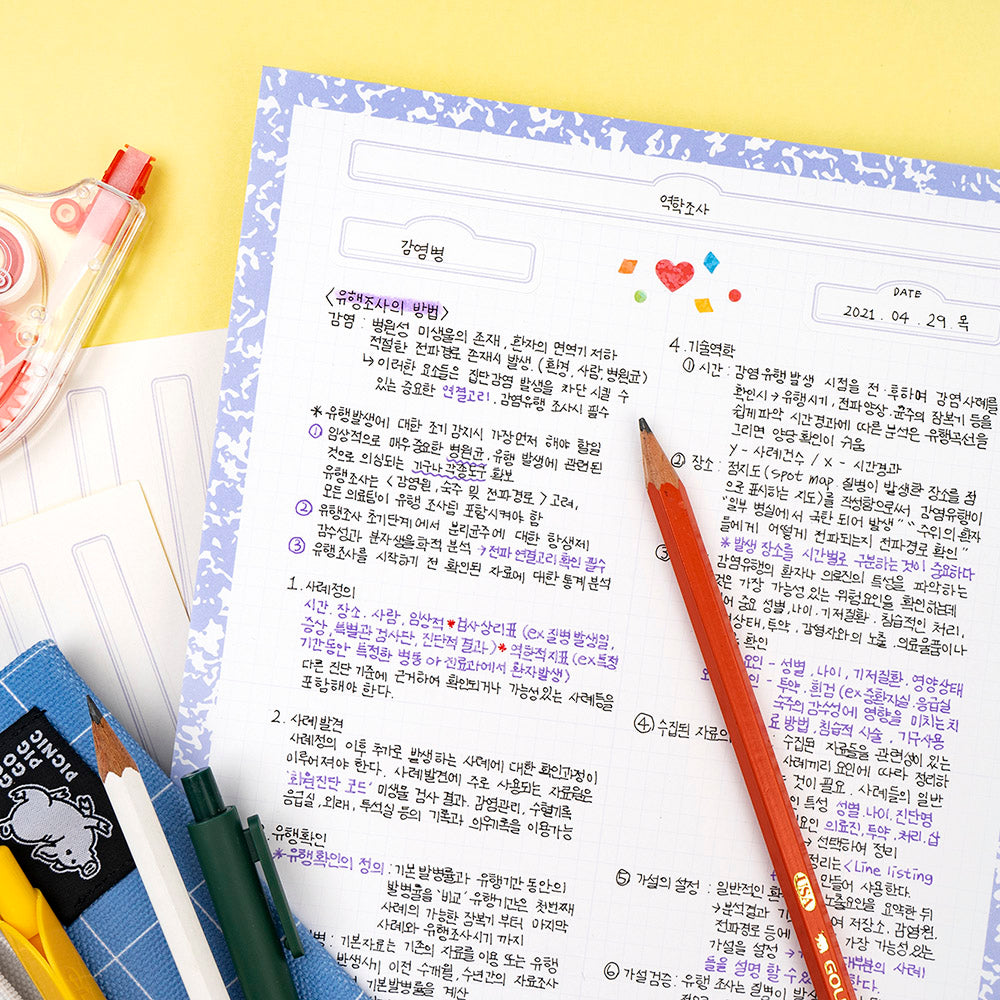 역학조사
감염병
DATE
2021. 04. 29. 목
<유행조사의 방법>
감염 : 병원성 미생물의 존재, 환자의 면역기 저하
적절한 전파경로 존재시 발생. (환경, 사람, 병원균)
↳ 이러한 요소들은 집단감염 발생을 차단 시킬 수
있는 중요한 연결고리. 감염유행 조사시 필수
* 유행발생에 대한 초기 감지시 가장먼저 해야 할일
① 임상적으로 매우중요한 병원균, 유행 발생에 관련된
것으로 의심되는 기구나 각종도구 확보
유행조사는 <감염원, 숙주 및 전파경로> 고려,
모든 의료팀이 유행 조사팀 포함시켜야 함
② 유행조사 초기단계에서 분리균주에 대한 항생제
감수성과 분자생물학적 분석 → 전파 연결고리 확인 필수
③ 유행조사를 시작하기 전 확인된 자료에 대한 통계 분석
1. 사례정의
시간, 장소, 사람, 임상적 * 검사상리표 (ex 질병 발생일,
증상, 특별관 검사단, 진단적 결과) * 역학적지표 (ex 특정
기간동안 특정한 병동 or 진료과에서 환자발생)
다른 진단 기준에 근거하여 확인되거나 가능성있는 사례들을
포함해야 한다.
2. 사례 발견
사례정의 이후 추가로 발생하는 사례에 대한 확인과정이
이루어져야 한다. 사례발견에 주로 사용되는 자료원은
'회원진단 코드' 미생물 검사 결과, 감염관리, 수혈기록
응급실, 외래, 투석실 등의 기록과 의무기록을 이용가능
유행확인
*유행확인의 정의 : 기본 발병률과 유행기간 동안의
발병률을 '비교' 유행기간은 첫번째
사례의 가능한 잠복기 부터 마지막
사례와 유행조사시기 까지
: 기본자료는 기존의 자료를 이용 또는 유행
발생시기 이전 수개월, 수년간의 자료조사
기본발병률을 계산
4. 기술역학
① 시간 : 감염유행 발생 시점을 전·후하여 감염사례를
확인시 → 유행시기, 전파양상, 균주의 잠복기 등을
쉽게 파악 시간경과에 따른 분석은 유행곡선을
그리면 양당 확인이 쉬움
y - 사례건수 / x - 시간경과
② 장소 : 점지도 (spot map 질병이 발생환 장소를 점
으로 표시하는 지도)를 작성함으로써 감염유행이
"일부 병실에서 국한 되어 발생" " 주위의 환자
들에게 어떻게 전파되는지 전파경로 확인"
*발생 장소를 시간별로 구분하는 것이 중요하다
③
감염유행의 환자나 의료진의 특성을 파악하는
것은 가장 가능성 있는 위험요인을 확인하는데
중요 성별, 나이, 기저질환, 침습적인 처리,
상태, 투약, 감염자와의 노출, 의료물품이나
확인
요인 - 성별, 나이, 기저질환, 영양상태
- 투약, 흰검 (ex 중환자실, 응급실
숙주의 감수성에 영향을 미치는 치
료 방법, 침습적 시술, 기구사용
④ 수집된 자료의
수집된 자료들을 관련성이 있는
사례끼리 요인에 따라 정리하
것이 필요. 사례들의 일반
특성 성별, 나이, 진단명
요인 의료진, 투약, 처리, 삽
→ 선택하여 정리
정리는 <Line listing
만들어 사용한다.
⑤ 가설의 설정 : 일반적인 환
노출요인을 요약한 뒤
→ 분석결과
저장소, 감염원,
전파경로 등에
가장 가능성있는
가설을 설정 →
대부분의 사례
들을 설명 할 수
한다.
⑥ 가설검증 : 유행 조사는 질병이 발
USA
GOGO
PIG
PICNIC